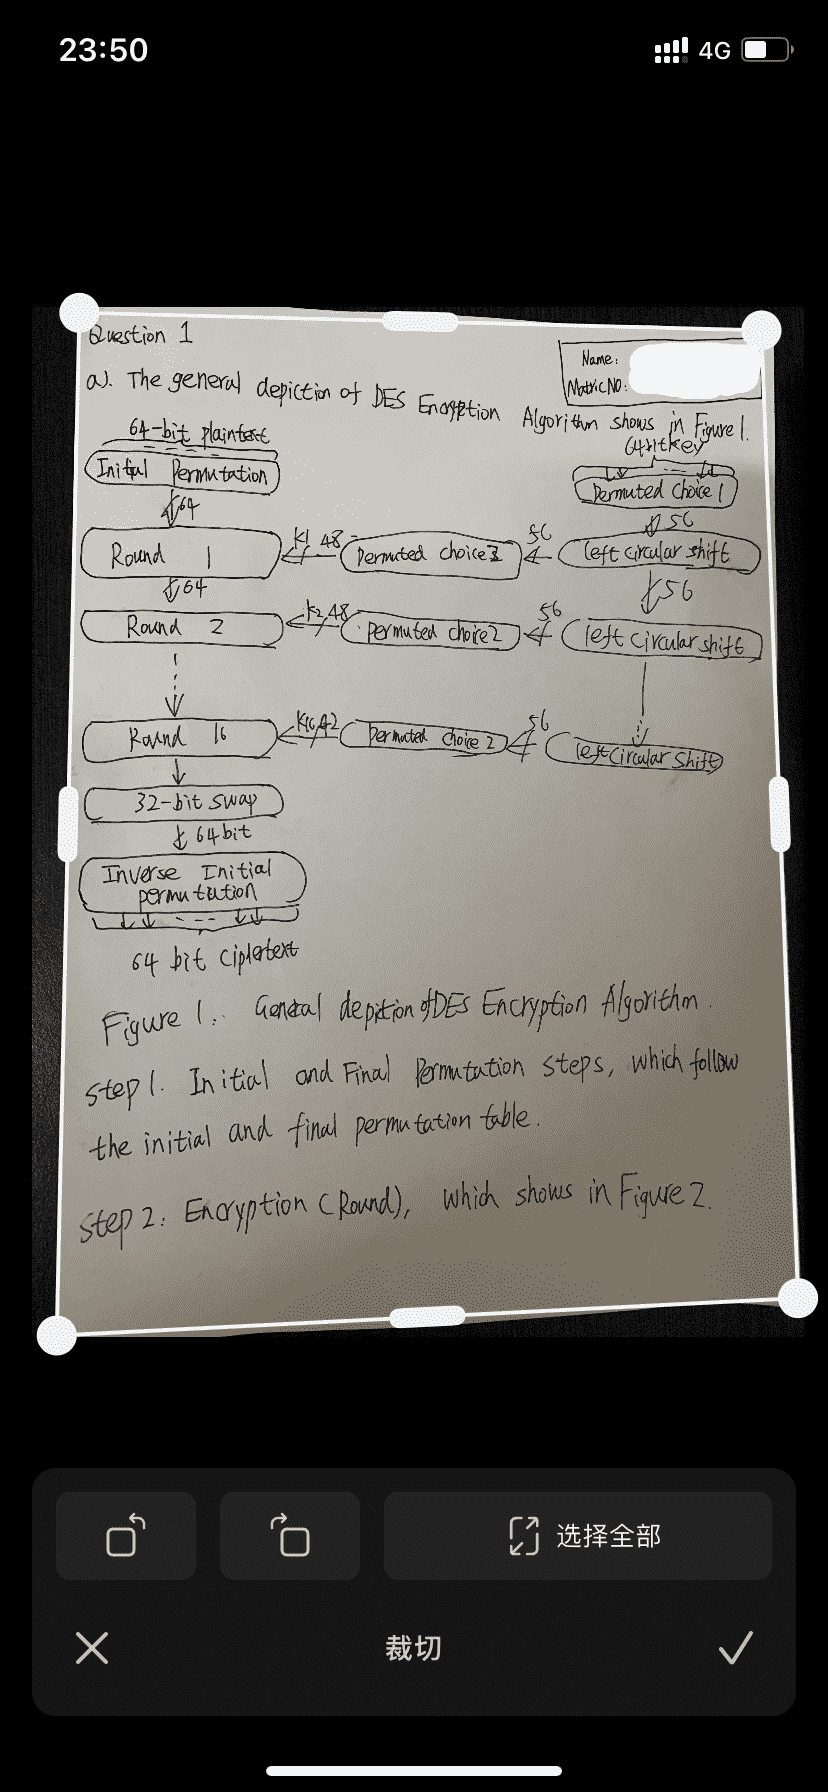 23:50
4G
Question 1
Name:
Matric NO:
a). The general depiction of DES Encryption Algorithm shows in Figure 1.
64-bit plaintext
64bitkey
Initial Permutation
Permuted Choice 1
64
56
Round 1
K1 48
Permuted choice 2
56
left circular shift
64
56
Round 2
K2 48
permuted choice 2
56
left Circular shift
Round 16
K16
Permuted choice 2
56
left Circular Shift
32-bit swap
64 bit
Inverse Initial
permutation
64 bit Ciphertext
Figure 1. General depiction of DES Encryption Algorithm.
step 1. Initial and Final Permutation steps, which follow
the initial and final permutation table.
step 2: Encryption (Round), which shows in Figure 2.
选择全部
裁切